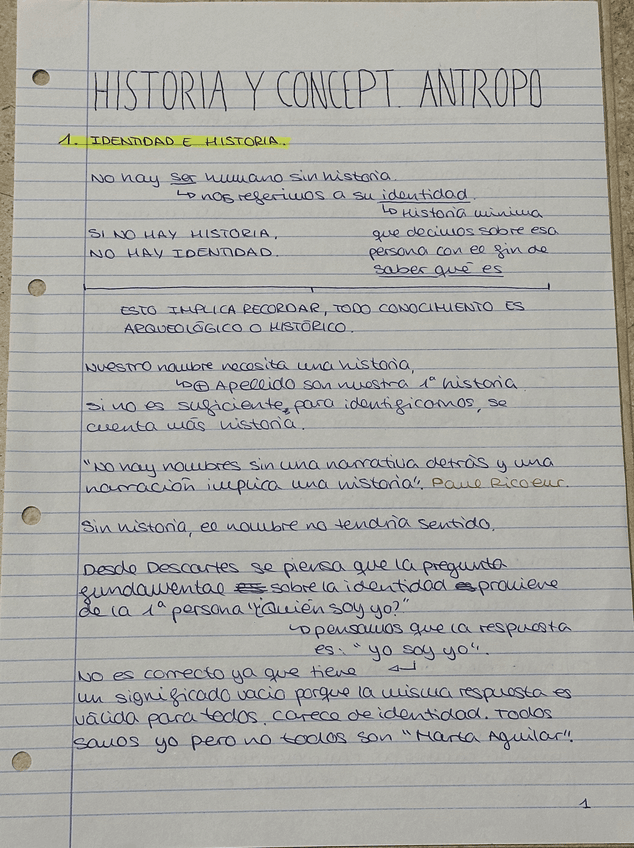 HISTORIA Y CONCEPT. ANTROPO
1. IDENTIDAD E HISTORIA.
No hay ser humano sin historia.
↳ nos referimos a su identidad.
↳ Historia mínima
que decimos sobre esa
persona con el fin de
saber qué es
SI NO HAY HISTORIA,
NO HAY IDENTIDAD.
ESTO IMPLICA RECORDAR, TODO CONOCIMIENTO ES
ARQUEOLÓGICO O HISTÓRICO.
Nuestro nombre necesita una historia,
↳ ⊕ Apellido son nuestra 1ª historia
si no es suficiente, para identificarnos, se
cuenta más historia.
"No hay nombres sin una narrativa detrás y una
narración implica una historia". Paul Ricoeur.
Sin historia, el nombre no tendría sentido.
Desde Descartes se piensa que la pregunta
fundamental es sobre la identidad es proviene
de la 1ª persona "¿Quién soy yo?"
↳ pensamos que la respuesta
es: "yo soy yo".
No es correcto ya que tiene ↲
un significado vacío porque la misma respuesta es
válida para todos, carece de identidad. Todos
somos yo pero no todos son "Marta Aguilar".
1